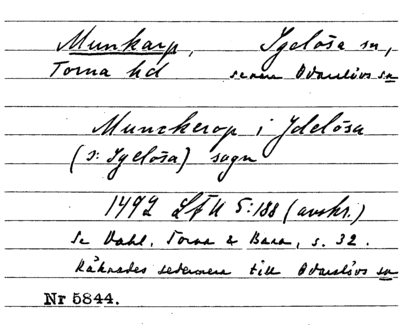 Munkarp, Igelösa sn,
Torna hd senare Odarslövs sn
Munckerop i Jdelösa
(ɔ: Igelösa) sogn
1492 LfU 5:188 (avskr.)
Se Dahl, Torna & Bara, s. 32.
Räknades sedermera till Odarslövs sn
Nr 5844.